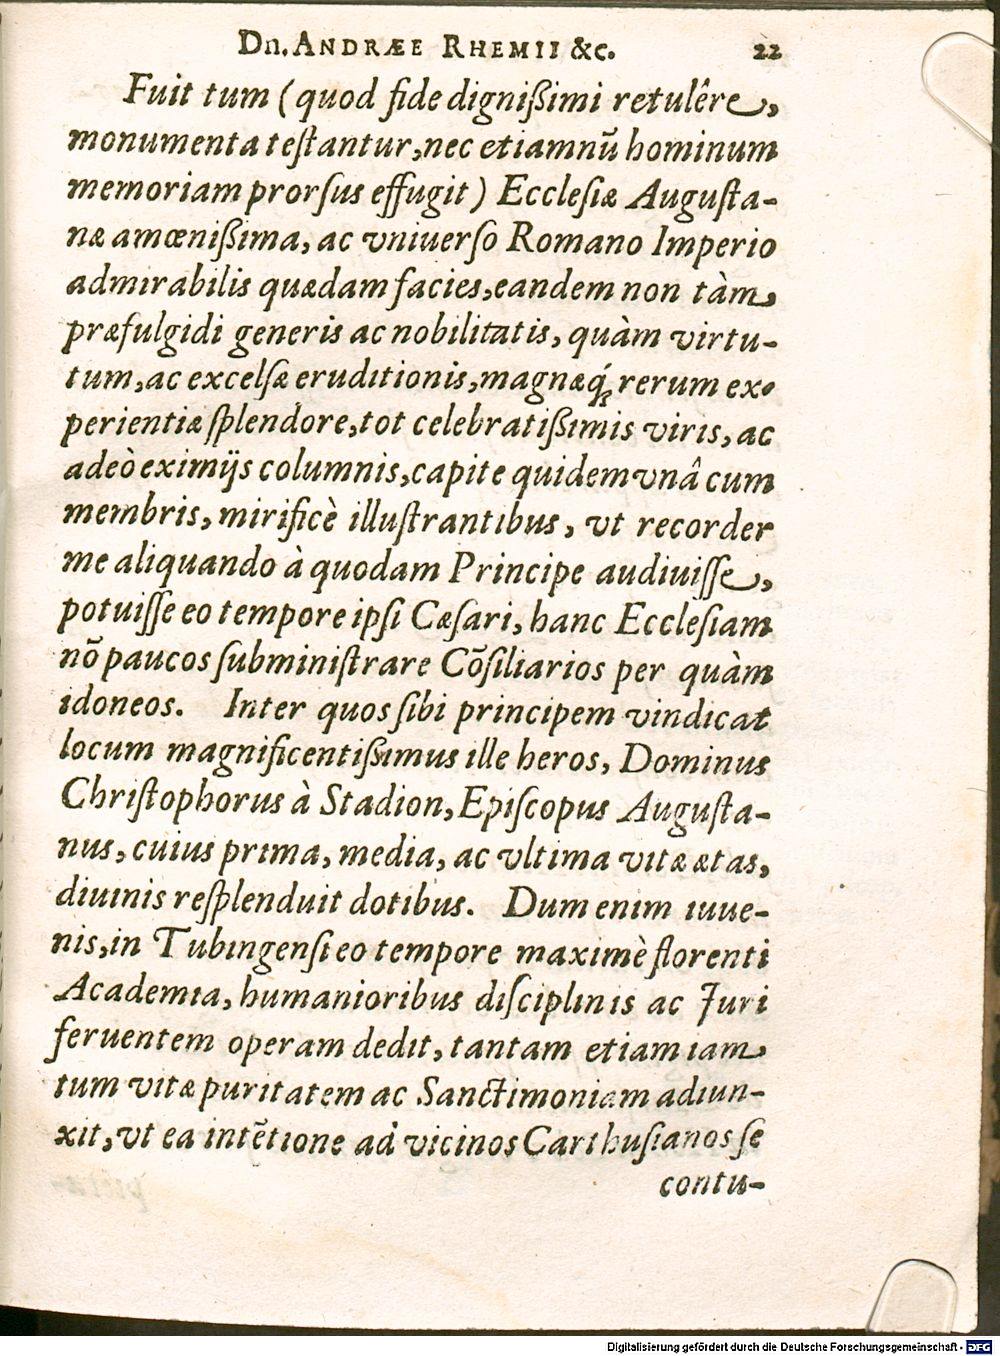 Dn. ANDRÆE RHEMII &c. 22
Fuit tum (quod fide digniſſimi retulêre,
monumenta teſtantur, nec etiamnũ hominum
memoriam prorſus effugit) Eccleſiæ Auguſta-
næ amœniſſima, ac vniuerſo Romano Imperio
admirabilis quædam facies, eandem non tàm
præfulgidi generis ac nobilitatis, quàm virtu-
tum, ac excelſæ eruditionis, magnæq́; rerum ex-
perientiæ ſplendore, tot celebratißimis viris, ac
adeò eximijs columnis, capite quidem vnâ cum
membris, mirificè illuſtrantibus, vt recorder
me aliquando à quodam Principe audiuiſſe,
potuiſſe eo tempore ipſi Cæſari, hanc Eccleſiam
nõ paucos ſubminiſtrare Cõſiliarios per quàm
idoneos. Inter quos ſibi principem vindicat
locum magnificentißimus ille heros, Dominus
Chriſtophorus à Stadion, Epiſcopus Auguſta-
nus, cuius prima, media, ac vltima vitæ ætas,
diuinis reſplenduit dotibus. Dum enim iuue-
nis, in Tubingenſi eo tempore maximè florenti
Academia, humanioribus diſciplinis ac Juri
feruentem operam dedit, tantam etiam iam
tum vitæ puritatem ac Sanctimoniam adiun-
xit, vt ea intẽtione ad vicinos Carthuſianos ſe
contu-
Digitalisierung gefördert durch die Deutsche Forschungsgemeinschaft - DFG